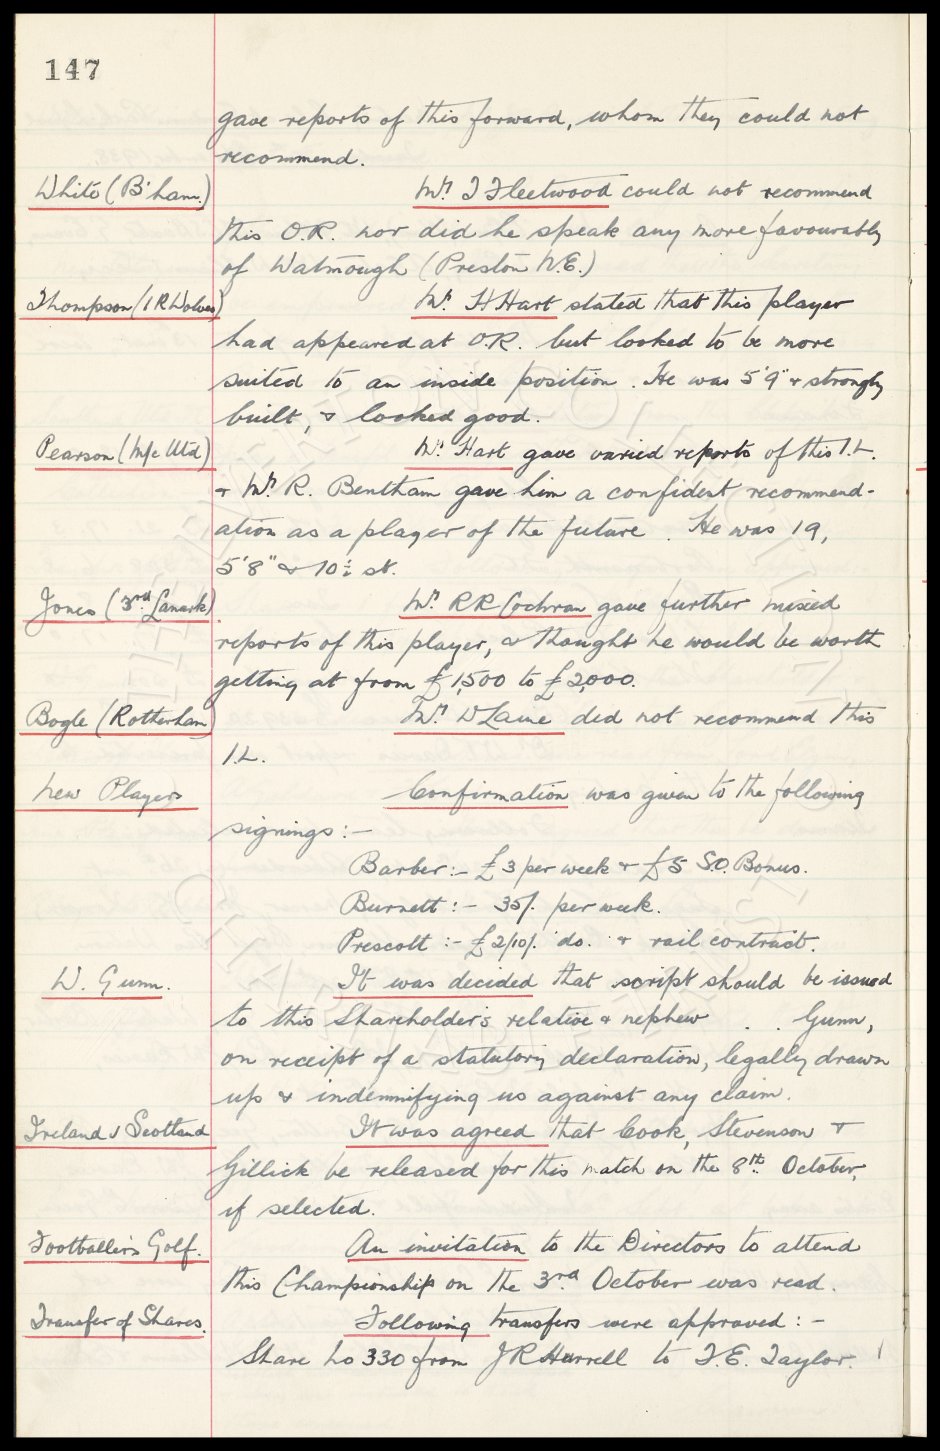 147
gave reports of this forward, whom they could not
recommend.
White (B'ham.) Mr. T Fleetwood could not recommend
this O.R. nor did he speak any more favourably
of Watmough (Preston N.E.)
Thompson (I R Wolves) Mr. H Hart stated that this player
had appeared at O.R. but looked to be more
suited to an inside position. He was 5'9" & strongly
built, & looked good.
Pearson (M/c Utd) Mr. Hart gave varied reports of this I.L.
& Mr R. Bentham gave him a confident recommend-
ation as a player of the future. He was 19,
5'8" & 10½ st.
Jones (3rd. Lanark). Mr. R R Cochran gave further mixed
reports of this player, & thought he would be worth
getting at from £1,500 to £2,000.
Bogle (Rotherham) Mr. D Laine did not recommend this
I.L.
New Players Confirmation was given to the following
signings:-
Barber:- £3 per week & £5 S.O. Bonus.
Burnett:- 35/. per week.
Prescott:- £2/10/. do. & rail contract.
W. Gunn. It was decided that script should be issued
to this Shareholder's relative & nephew . . Gunn,
on receipt of a statutory declaration, legally drawn
up & indemnifying us against any claim.
Ireland v Scotland It was agreed that Cook, Stevenson &
Gillick be released for this match on the 8th. October,
if selected.
Footballers Golf. An invitation to the Directors to attend
this Championship on the 3rd. October was read.
Transfer of Shares. Following transfers were approved:-
Share No 330 from J R Harrell to T. E. Taylor.